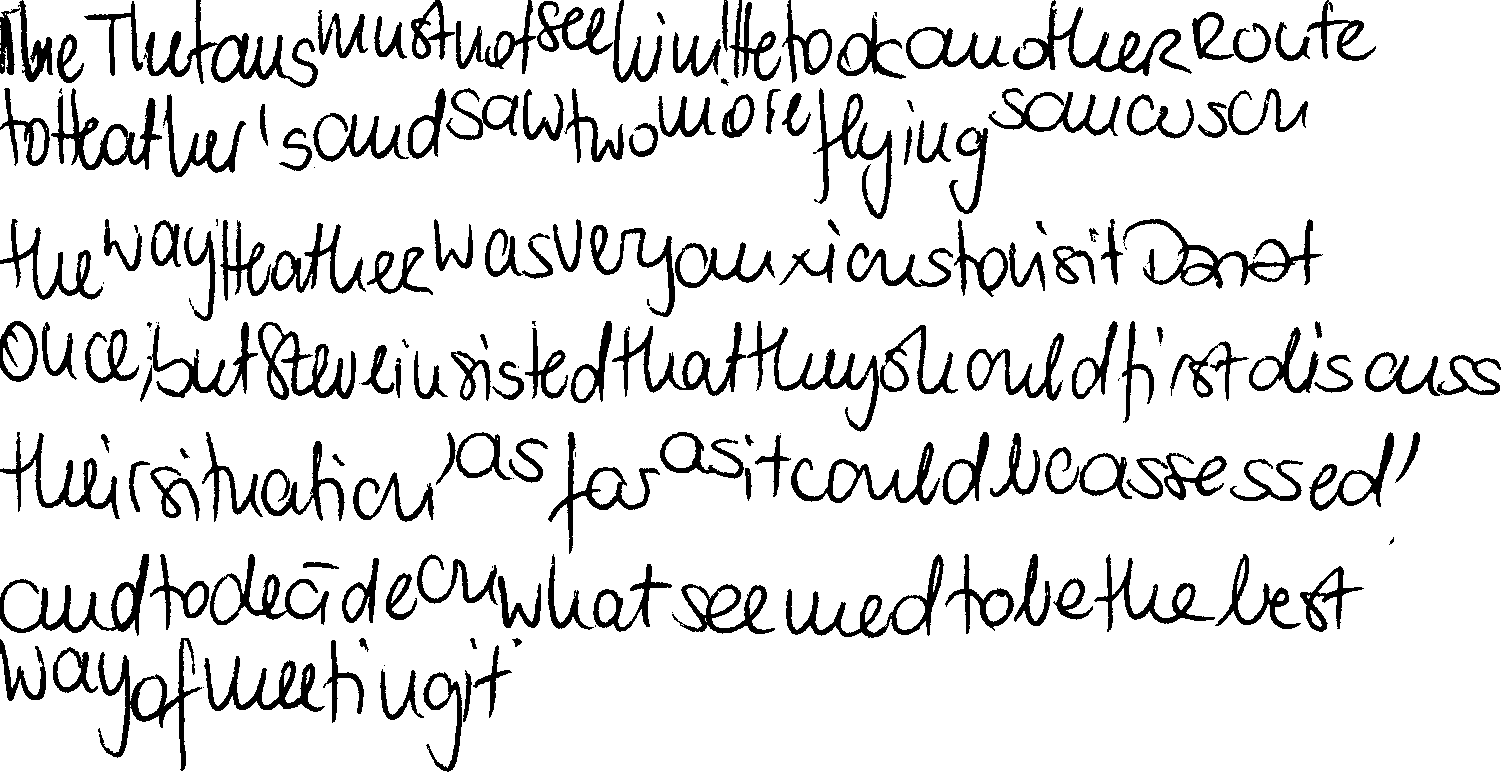 The Thetans must not see him! He took another Route
to Heather's and saw two more flying saucers on
the way. Heather was very anxious to visit Dan at
once, but Steve insisted that they should first discuss
their situation, as far as it could be assessed,
and to decide on what seemed to be the best
way of meeting it.